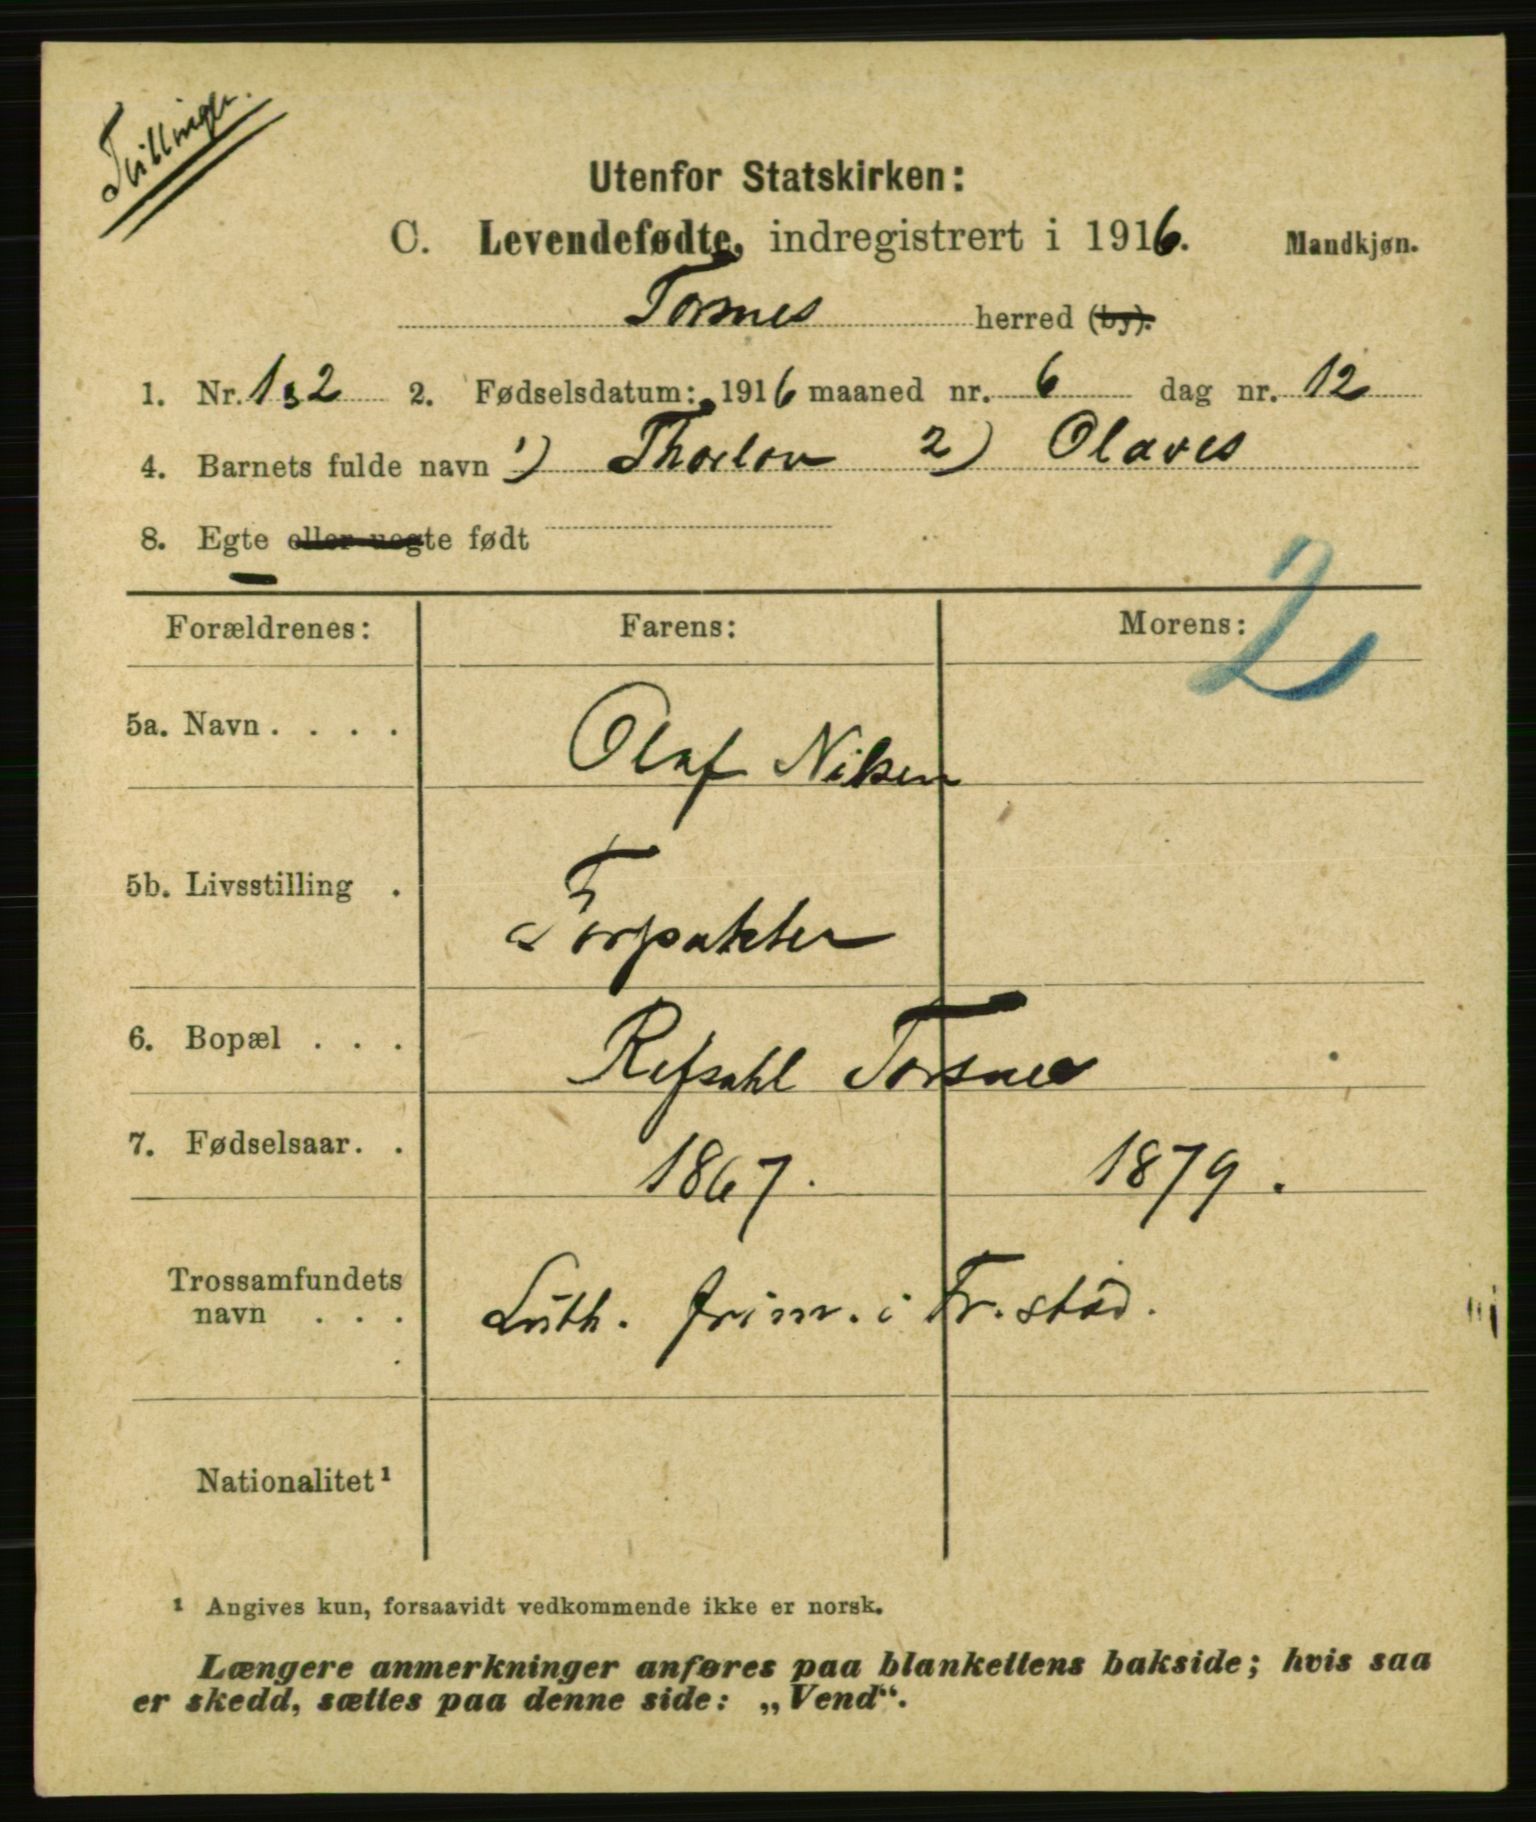 Tvillinger.
Utenfor Statskirken:
C. Levendefødte, indregistrert i 1916. Mandkjøn.
Torsnes herred (by).
1. Nr. 1 & 2 2. Fødselsdatum: 1916 maaned nr. 6 dag nr. 12
4. Barnets fulde navn 1) Thorlov 2) Olaves
8. Egte eller uegte født
2
Forældrenes: Farens: Morens:
5a. Navn . . . . Olaf Nilsen
5b. Livsstilling . Forpakter
6. Bopæl . . . Refsahl Torsnes
7. Fødselsaar . . 1867. 1879.
Trossamfundets
navn . . . Luth. frim. i Fr.stad.
Nationalitet¹
¹ Angives kun, forsaavidt vedkommende ikke er norsk.
Længere anmerkninger anføres paa blankettens bakside; hvis saa
er skedd, sættes paa denne side: „Vend“.